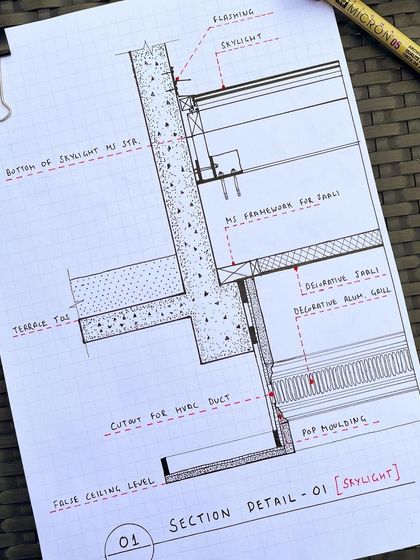 MICRON 05
FLASHING
SKYLIGHT
BOTTOM OF SKYLIGHT MS STR.
MS FRAMEWORK FOR JAALI
DECORATIVE JAALI
DECORATIVE ALUM GRILL
TERRACE TOS
CUTOUT FOR HVAC DUCT
POP MOULDING
FALSE CEILING LEVEL
01
SECTION DETAIL-01 [SKYLIGHT]